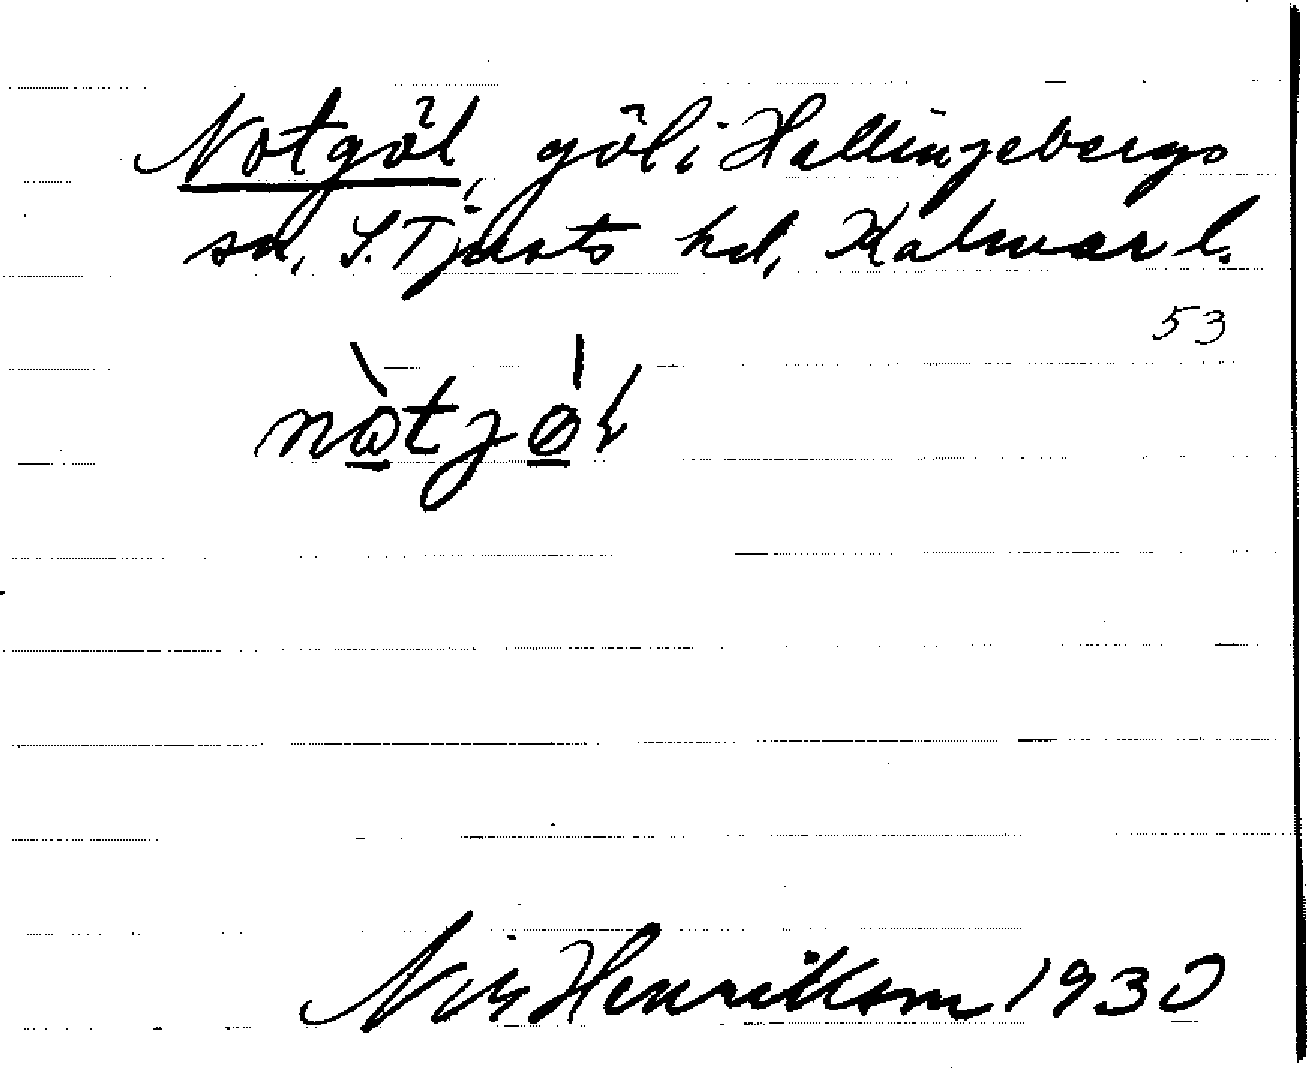 Notgöl, göl i Hallingebergs
sn, S. Tjusts hd, Kalmar l.
53
Nils Henriksson 1930